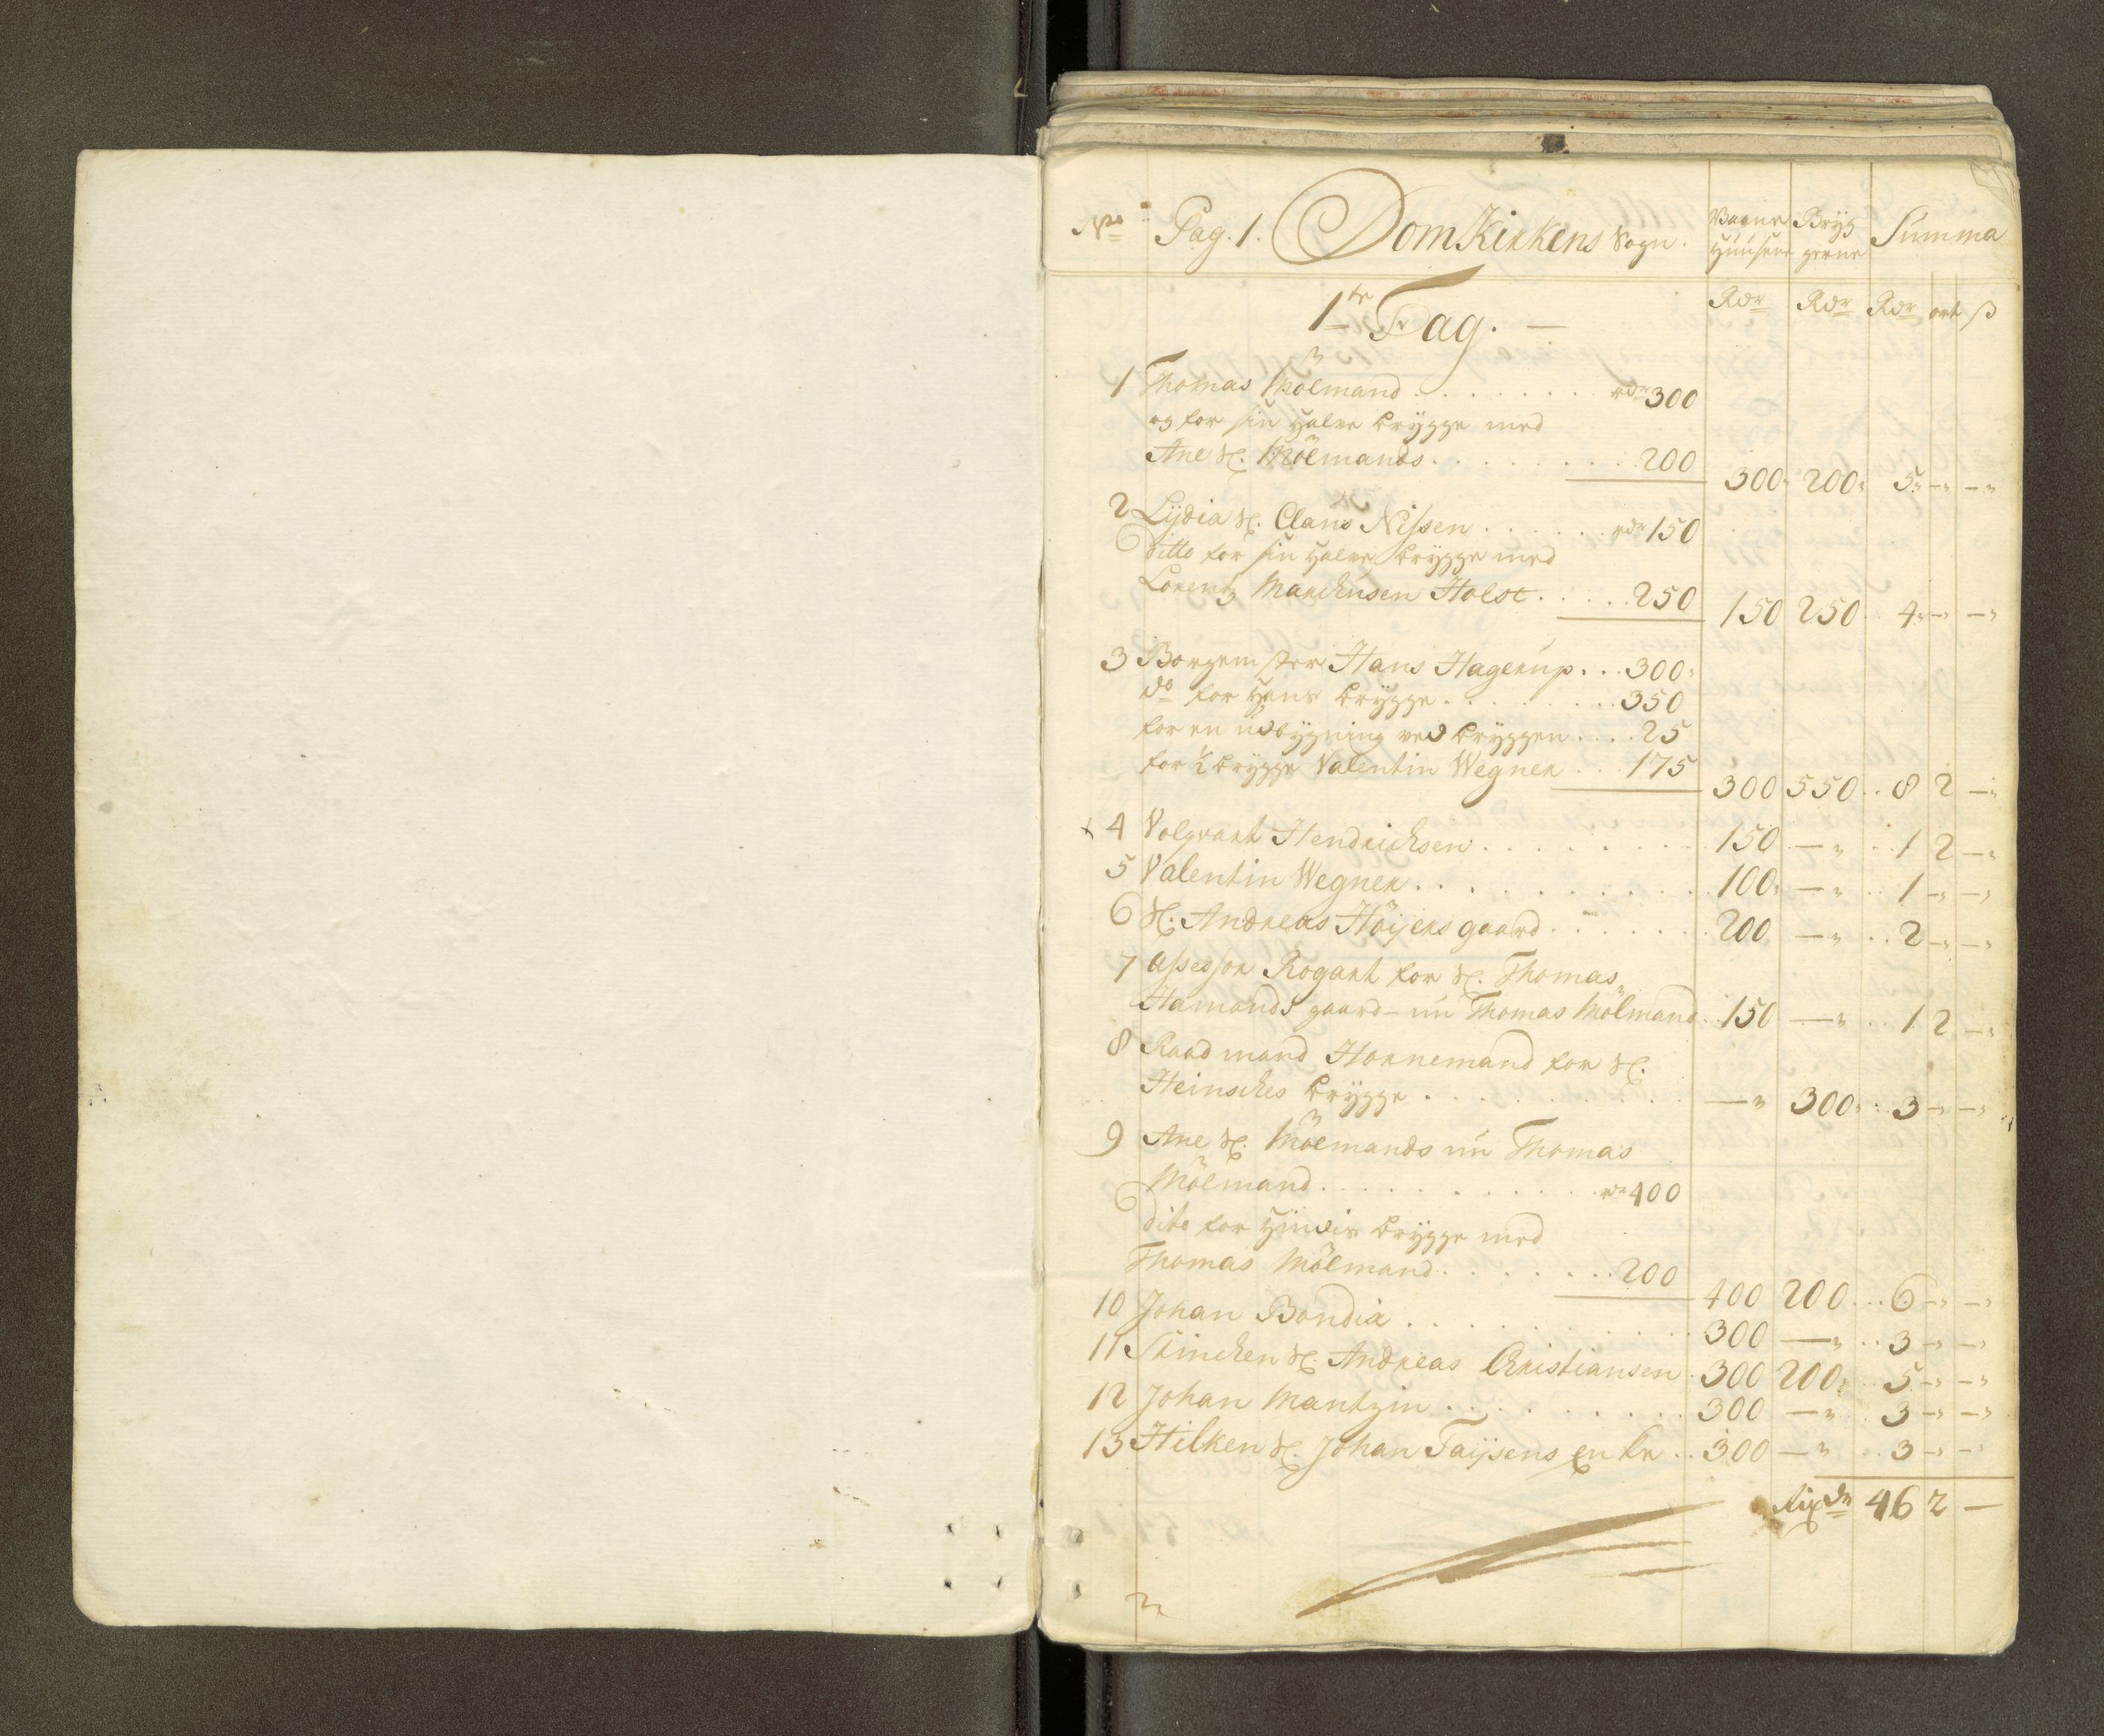 No Pag. 1. DomKirkens Sogn. Vaane Huusene Bryggerne Summa
1te Fag. — Rdr Rdr Rdr ort ß
1 Thomas Mölmand . . . . . . . . rdr 300
og for sin halve brygge med
Ane Sl. Mölmands . . . . . . . . 200 300 200 5 - -
2 Lydia Sl. Claus Nissen . . . . . rdr 150
ditto for sin halve brygge med
Lorentz Marchusen Holst . . . . . 250 150 250 4 - -
3 Borgemester Hans Hagerup . . . 300
do for hans brygge . . . . . . . . 350
for en udbygning ved bryggen . . . . 25
for ½ brygge Valentin Wegner . . . 175 300 550 8 2 -
4 Volqvart Hendrichsen . . . . . . . . 150 — 1 2 -
5 Valentin Wegner . . . . . . . . . . 100 — 1 - -
6 Sl. Andreas Höyers gaard . . . . . . . 200 — 2 - -
7 Assessor Rogart for Sl. Thomas
Hamonds gaard - nu Thomas Mölmand . 150 — 1 2 -
8 Raadmand Hornemand for Sl.
Heinsches brygge . . . . . . . . — 300 3 - -
9 Ane Sl. Mölmands nu Thomas
Mölmand . . . . . . . . . . . rdr 400
dito for hindis brygge med
Thomas Mölmand . . . . . . . . 200 400 200 6 - -
10 Johan Bondia . . . . . . . . . . . 300 — 3 - -
11 Stincken Sl. Andreas Christiansen . 300 200 5 - -
12 Johan Mantzin . . . . . . . . . . 300 — 3 - -
13 Hilken Sl. Johan Taysens Enke . . 300 — 3 - -
Rixdr 46 2 —